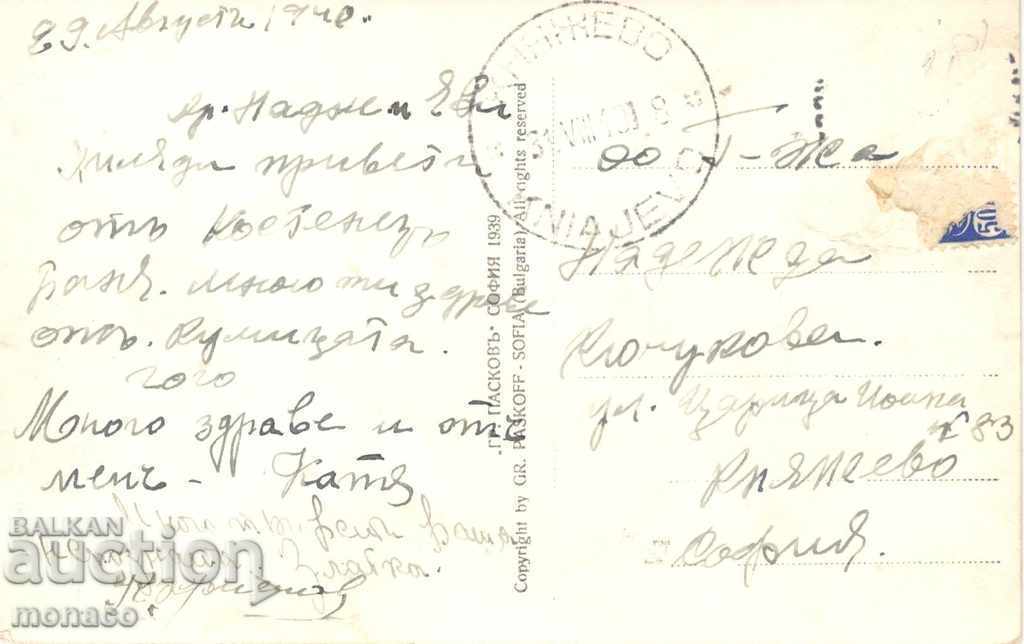 29. Августъ 1940.
др. Надже и Еви
Хиляди привети
отъ Костенецъ
Баня. много ти здраве
отъ. Кумицата.
гого
Много здраве и отъ
менъ - Катя
Златка.
КНЯЖЕВО
VIII 8
KNIAJEVO
"ГР. ПАСКОВЪ" СОФИЯ 1939
Copyright by GR. PASKOFF - SOFIA (Bulgaria) All rights reserved
До Г-жа
Надежда
Кючукова.
ул. Царица Иоана
№ 83
Княжево
София.
50
BALKAN
auction
monaco